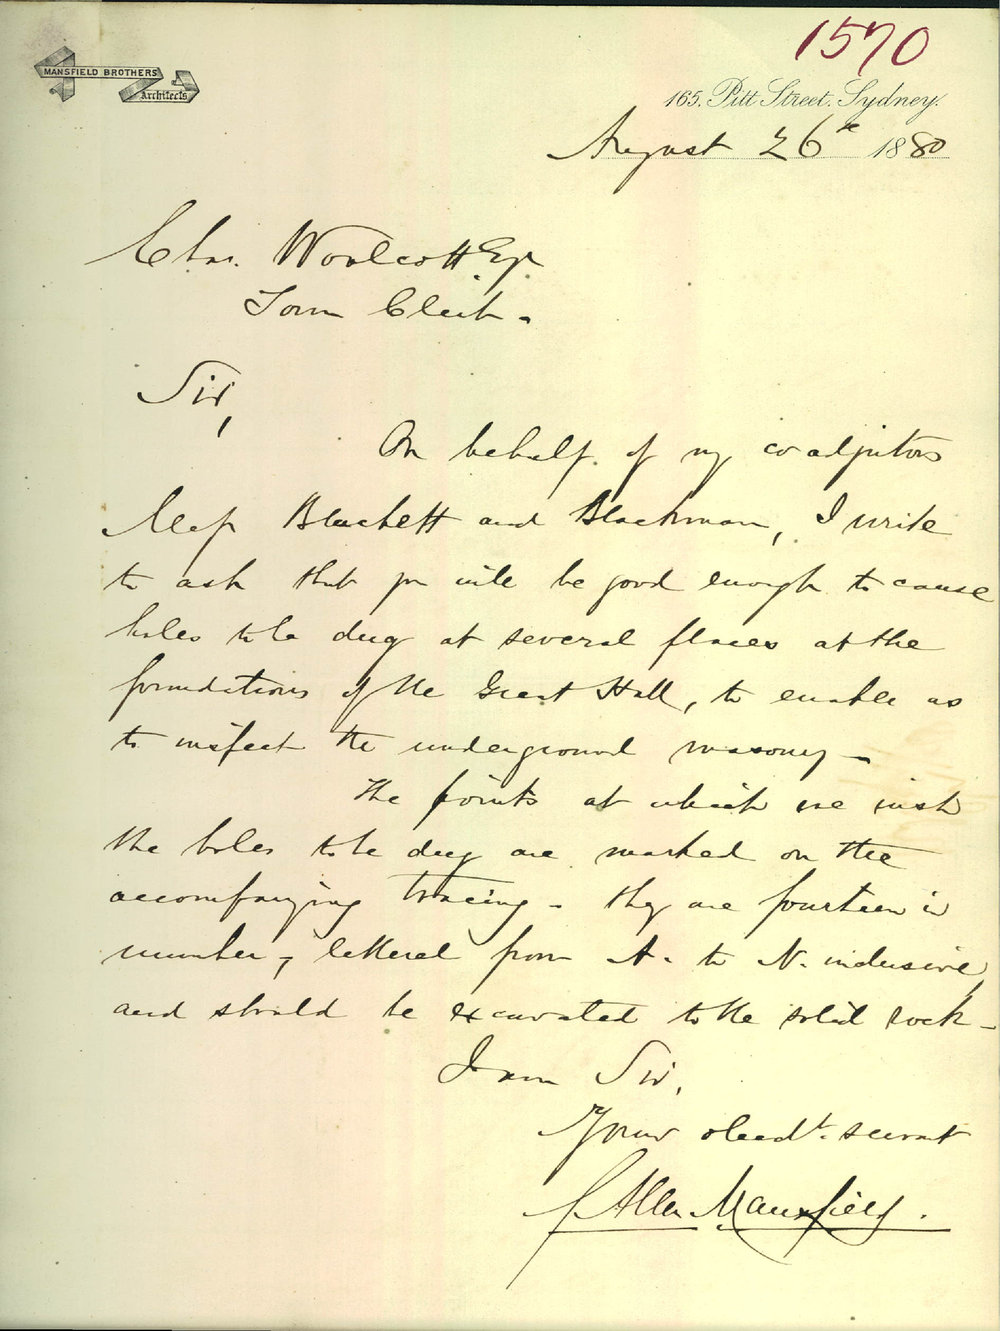 1570
MANSFIELD BROTHERS
Architects
165. Pitt Street. Sydney.
August 26th 1880
Chas. Woolcott Esqr.
Town Clerk.
Sir,
On behalf of my coadjutors
Messrs Blackett and Blackman, I write
to ask that you will be good enough to cause
holes to be dug at several places at the
foundations of the Great Hall, to enable us
to inspect the underground masonry –
The points at which we wish
the holes to be dug are marked on the
accompanying tracing – they are fourteen in
number, lettered from A. to N. inclusive,
and should be excavated to the solid rock –
I am Sir,
Your obedt. servant
G Allen Mansfield.